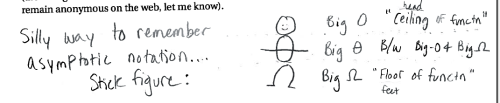 remain anonymous on the web, let me know).
Silly way to remember
asymptotic notation....
Stick figure:
head
Big O "Ceiling of functn"
Big Θ B/w Big-O & Big Ω
Big Ω "Floor of functn"
feet